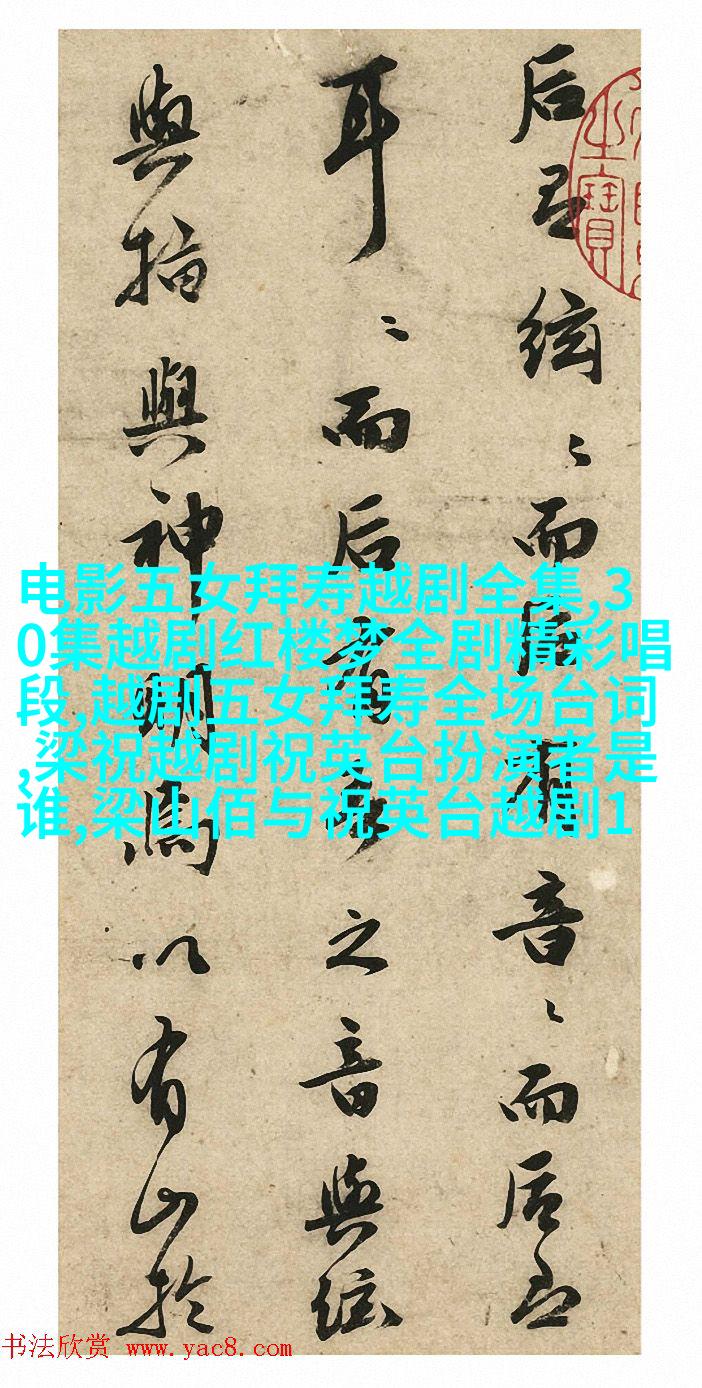 后絃〻而后有音〻而后
耳〻而后有之音與絃
與指與神明為以有山於
之寶
电影五女拜寿越剧全集,3
0集越剧红楼梦全剧精彩唱
段,越剧五女拜寿全场台词
,梁祝越剧祝英台扮演者是
谁,梁山佰与祝英台越剧1
书法欣赏 www.yac8.com